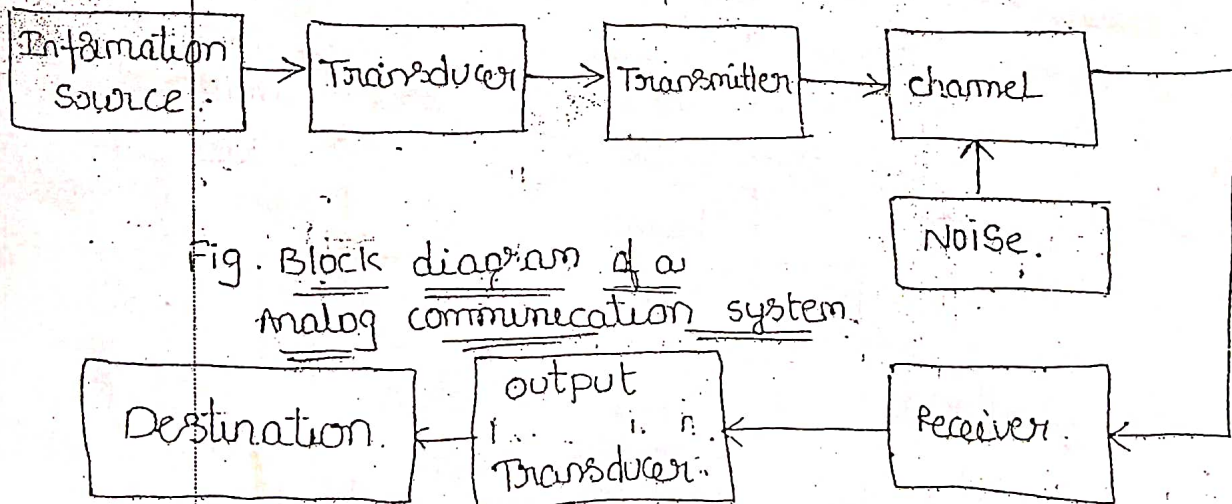 Information
Source.
Transducer
Transmitter
channel
Noise.
Fig. Block diagram of a
Analog communication system.
Receiver.
output
Transducer.
Destination.